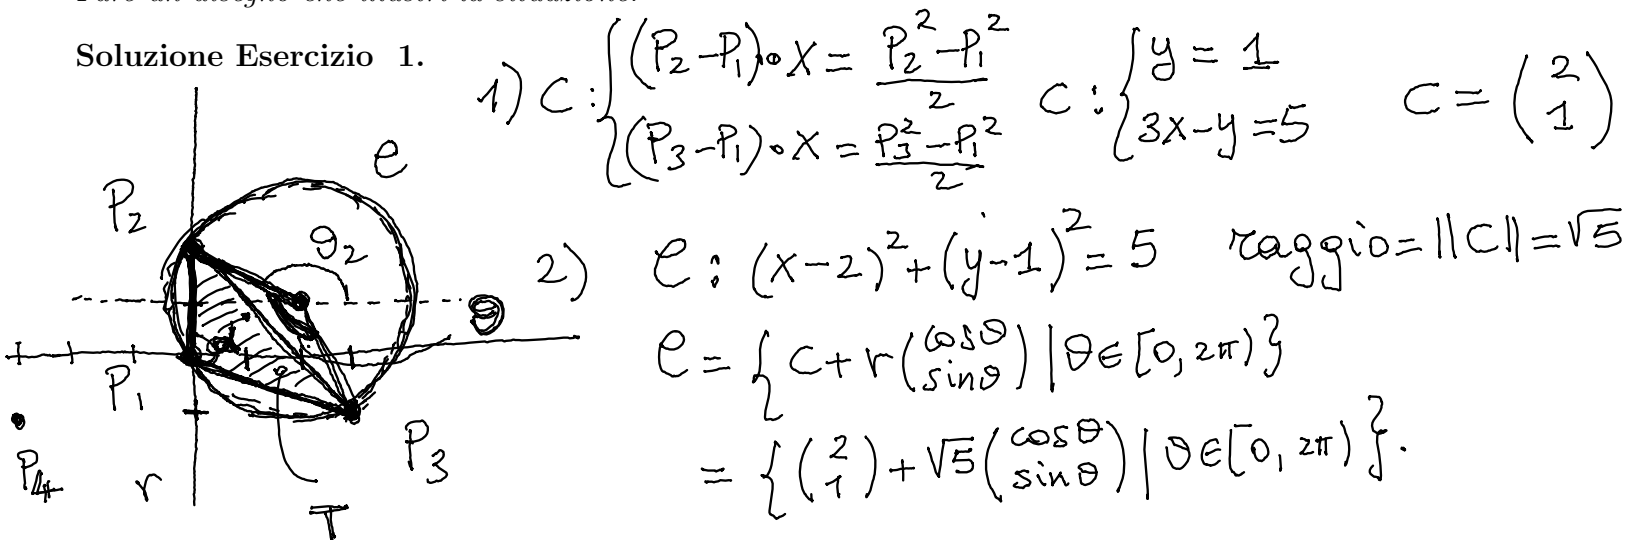 Soluzione Esercizio 1.
1) C: { (P₂-P₁)•X = (P₂²-P₁²)/2
(P₃-P₁)•X = (P₃²-P₁²)/2
C: { y = 1
3x-y=5
C = (2 1)
2) e: (x-2)²+(y-1)²=5 raggio=||C||=√5
e = { C+r(cosθ sinθ) | θ∈[0,2π) }
= { (2 1)+√5(cosθ sinθ) | θ∈[0,2π) }.
e
P₂
θ₂
θ
α
P₁
P₃
P₄
r
T